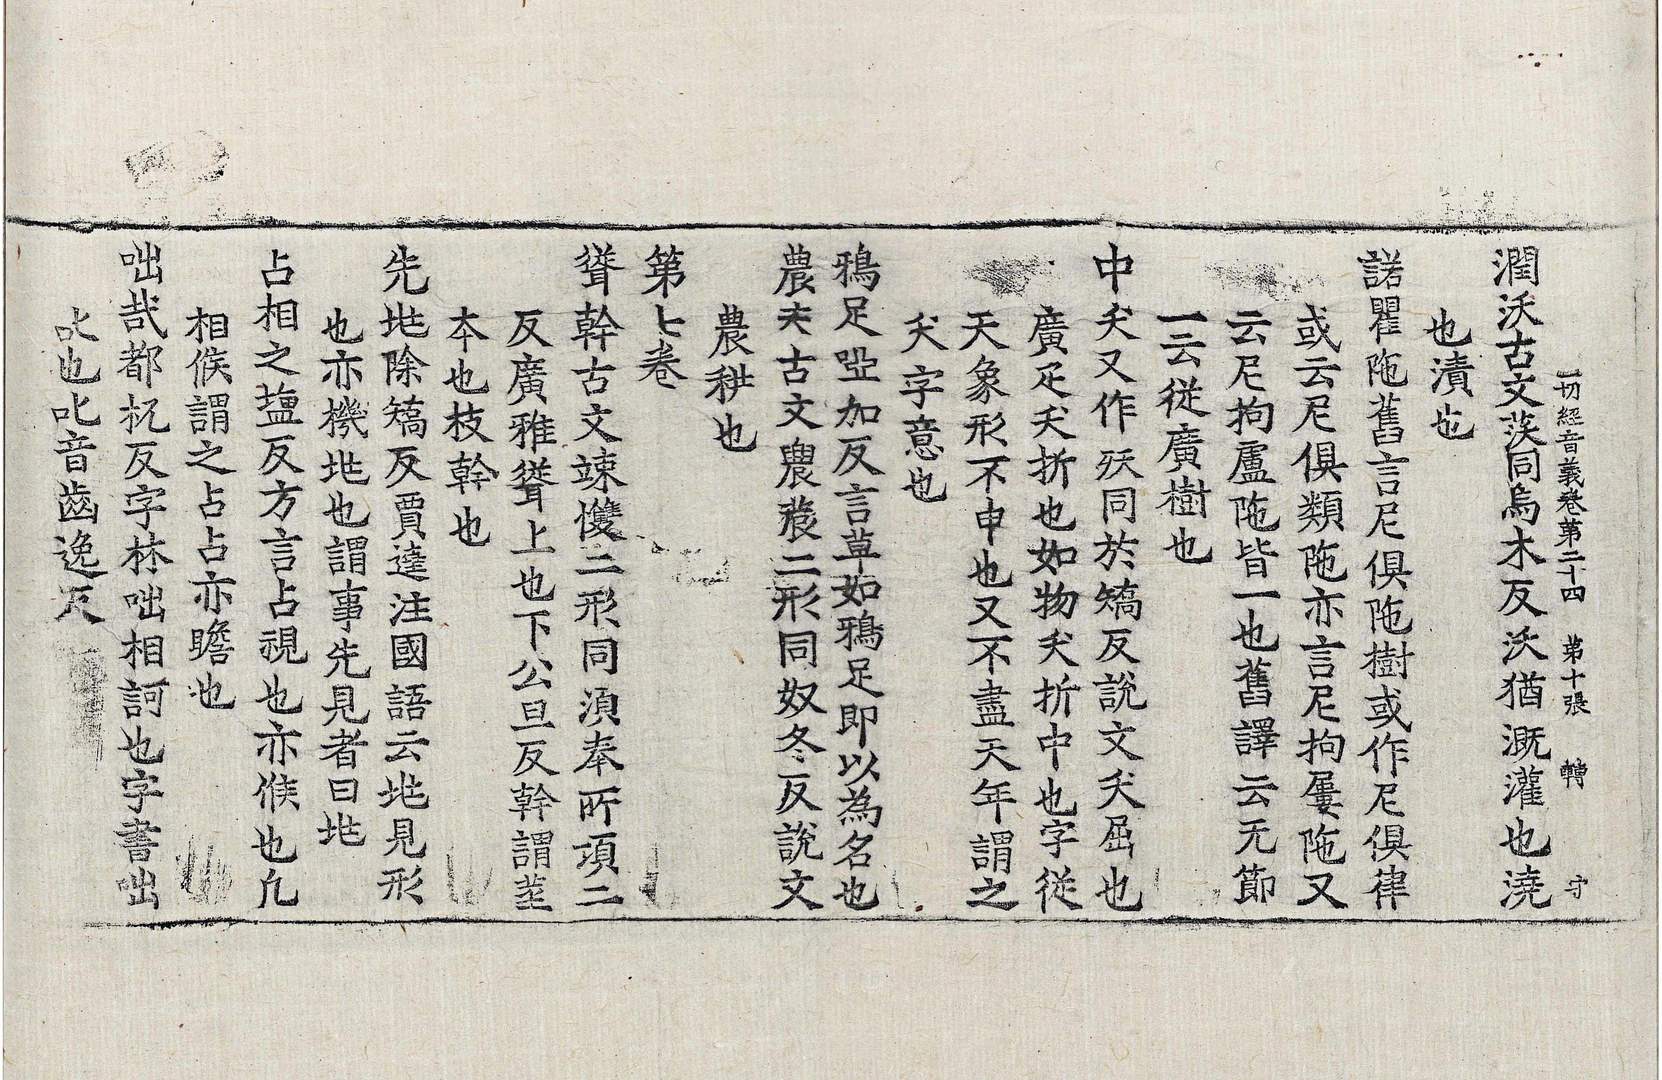 一切經音義卷第二十四　第十張　轉　守
潤沃古文渶同烏木反沃猶溉灌也澆
也漬也
諾瞿陁舊言尼俱陁樹或作尼俱律
或云尼俱類陁亦言尼拘屢陁又
云尼拘盧陁皆一也舊譯云无節
一云從廣樹也
中夭又作殀同於矯反說文夭屈也
廣疋夭折也如物夭折中也字從
天象形不申也又不盡天年謂之
夭字意也
鵶足啞加反言草如鵶足即以為名也
農夫古文𨑋䢉二形同奴冬反說文
農耕也
第七卷
聳幹古文竦㩳二形同湏奉所項二
反廣雅聳上也下公旦反幹謂莖
本也枝幹也
先兆除矯反賈逵注國語云兆見形
也亦機兆也謂事先見者曰兆
占相之壚反方言占視也亦候也凡
相候謂之占占亦瞻也
咄哉都杌反字林咄相訶也字書出
叱也叱音齒逸反